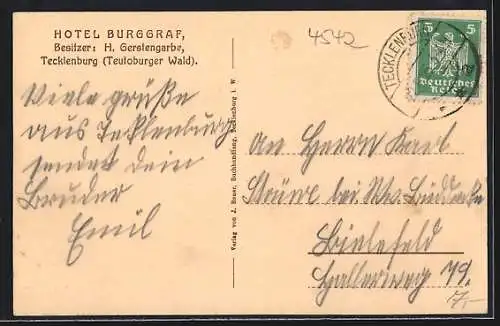 HOTEL BURGGRAF,
Besitzer: H. Gerstengarbe,
Tecklenburg (Teutoburger Wald).
4542
TECKLENBURG
5 5
Deutsches
Reich
Viele grüße
aus Tecklenburg
sendet dein
Bruder
Emil
Verlag von J. Bauer, Buchhandlung, Tecklenburg i. W.
An Herrn Karl
Strüwe bei
Bielefeld
Hallerweg 79.
7,-